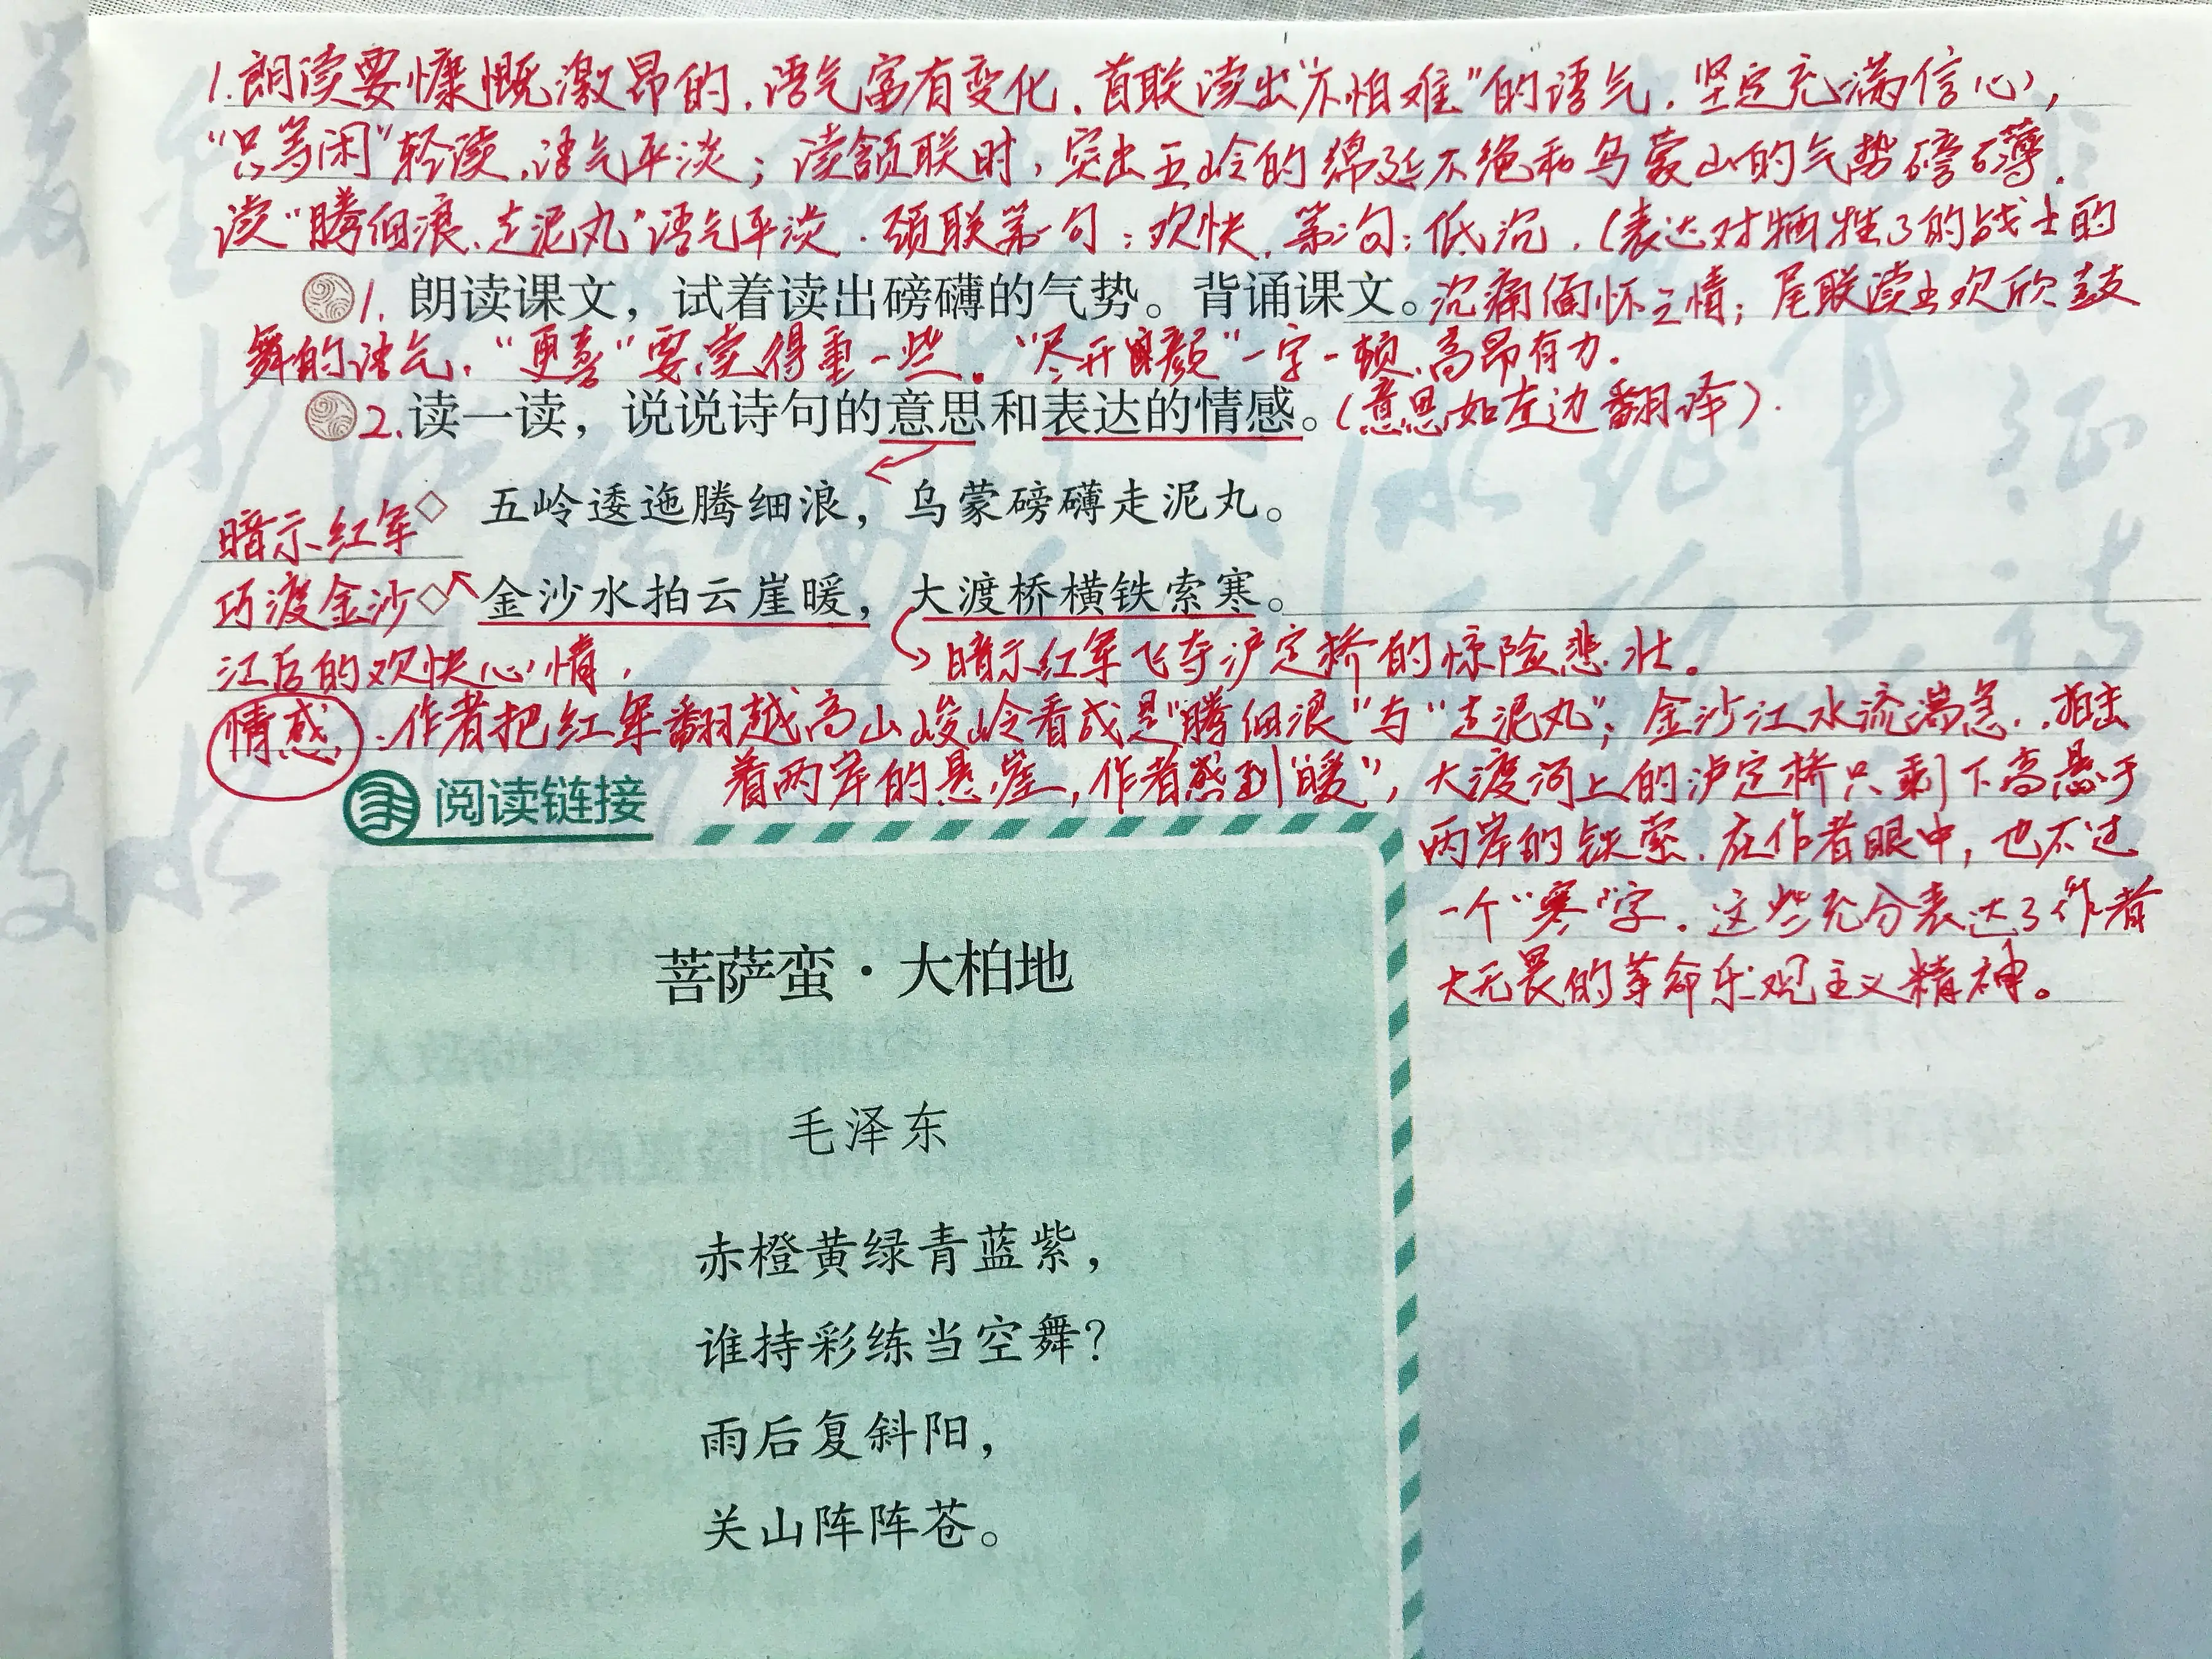 1.朗读要慷慨激昂的,语气富有变化,首联读出“不怕难”的语气,坚定充满信心,
“只等闲”轻读,语气平淡;读颔联时,突出五岭的绵延不绝和乌蒙山的气势磅礴,
读“腾细浪、走泥丸”语气平淡.颈联第一句:欢快,第二句:低沉,(表达对牺牲了的战士的
1.朗读课文，试着读出磅礴的气势。背诵课文。沉痛缅怀之情;尾联读出欢欣鼓
舞的语气,“更喜”要读得重一些。“尽开颜”一字一顿,高昂有力.
2.读一读，说说诗句的意思和表达的情感。(意思如左边翻译).
◇五岭逶迤腾细浪，乌蒙磅礴走泥丸。
暗示红军
巧渡金沙
◇金沙水拍云崖暖，大渡桥横铁索寒。
江后的欢快心情,
暗示红军飞夺泸定桥的惊险悲壮。
情感.作者把红军翻越高山峻岭看成是“腾细浪”与“走泥丸”;金沙江水流湍急,拍击
着两岸的悬崖,作者感到“暖”,大渡河上的泸定桥只剩下高悬于
阅读链接
两岸的铁索,在作者眼中,也不过
一个“寒”字.这些充分表达了作者
大无畏的革命乐观主义精神。
菩萨蛮·大柏地
毛泽东
赤橙黄绿青蓝紫，
谁持彩练当空舞？
雨后复斜阳，
关山阵阵苍。